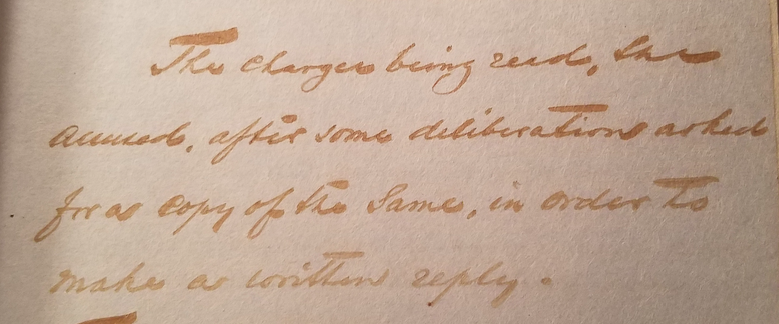 The charges being read, the
accused, after some deliberation asked
for a copy of the Same, in order to
make a written reply.